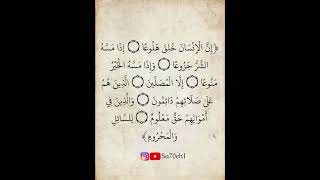 ﴿ إِنَّ الْإِنْسَانَ خُلِقَ هَلُوعًا ۝ إِذَا مَسَّهُ
الشَّرُّ جَزُوعًا ۝ وَإِذَا مَسَّهُ الْخَيْرُ
مَنُوعًا ۝ إِلَّا الْمُصَلِّينَ ۝ الَّذِينَ هُمْ
عَلَىٰ صَلَاتِهِمْ دَائِمُونَ ۝ وَالَّذِينَ فِي
أَمْوَالِهِمْ حَقٌّ مَعْلُومٌ ۝ لِلسَّائِلِ
وَالْمَحْرُومِ﴾
Sa70eh1